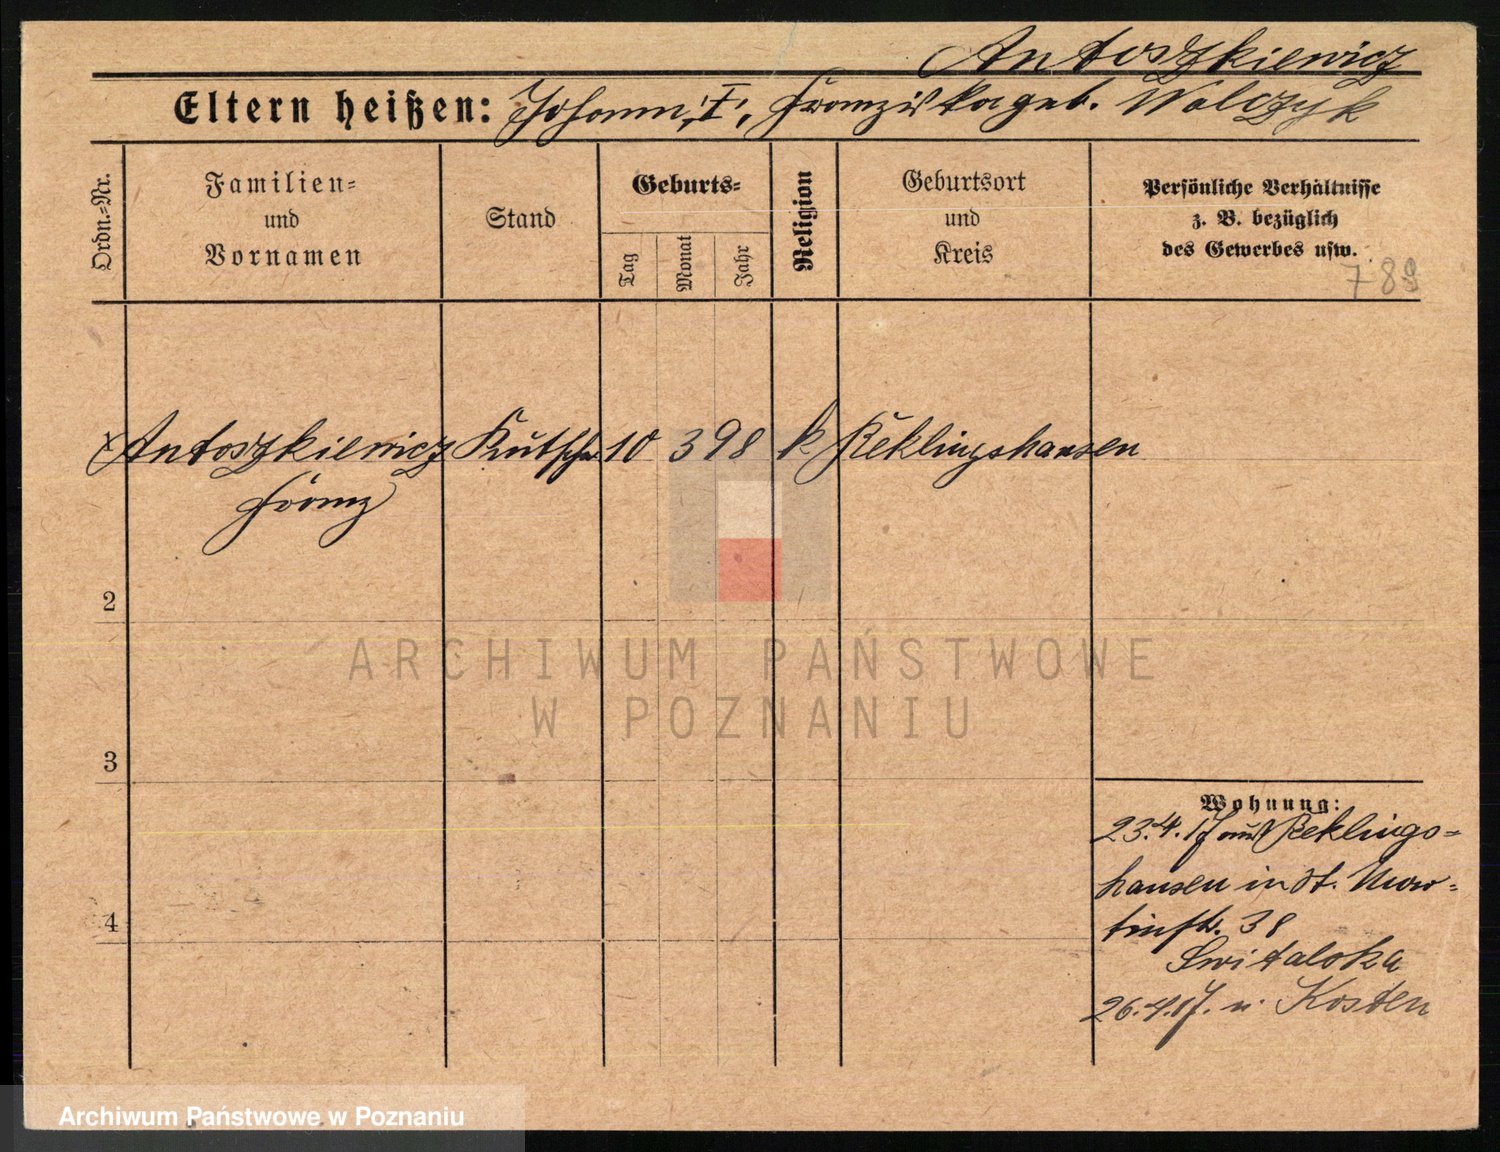 Antoszkiewicz
Eltern heißen: Johann, I, Franziska geb. Walczyk
Ordn.-Nr.
Familien-
und
Vornamen
Stand
Geburts-
Tag
Monat
Jahr
Religion
Geburtsort
und
Kreis
Persönliche Verhältnisse
z. B. bezüglich
des Gewerbes usw.
789
Antoszkiewicz Kutscher 10 3 98 k Reklingshausen
Franz
2
3
4
Wohnung:
23.4.17 aus Reklings-
hausen in St. Mar-
tinstr. 38
Switalska
26.4.17. n. Kosten
ARCHIWUM PAŃSTWOWE
W POZNANIU
Archiwum Państwowe w Poznaniu